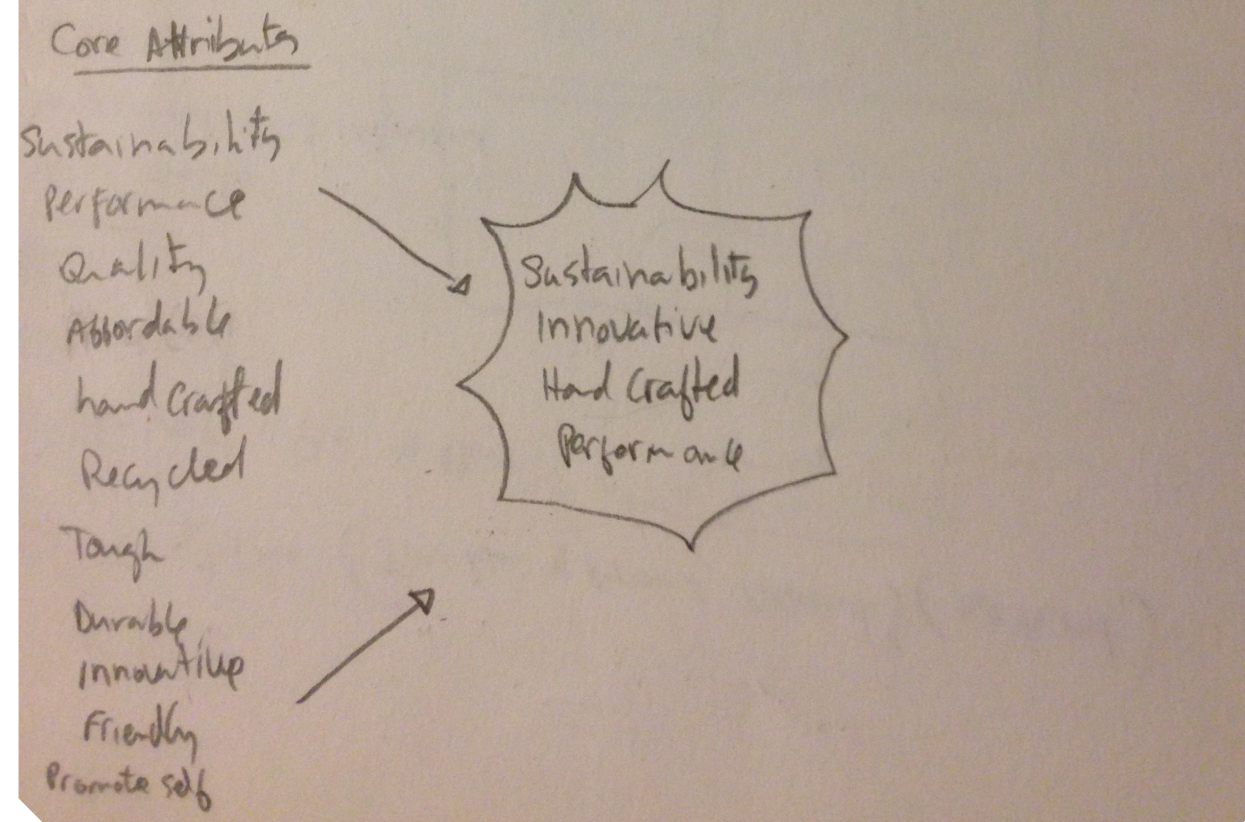 Core Attributes
Sustainability
Performance
Quality
Affordable
hand Crafted
Recycled
Tough
Durable
innovative
Friendly
Promote self
Sustainability
Innovative
Hand Crafted
Performance